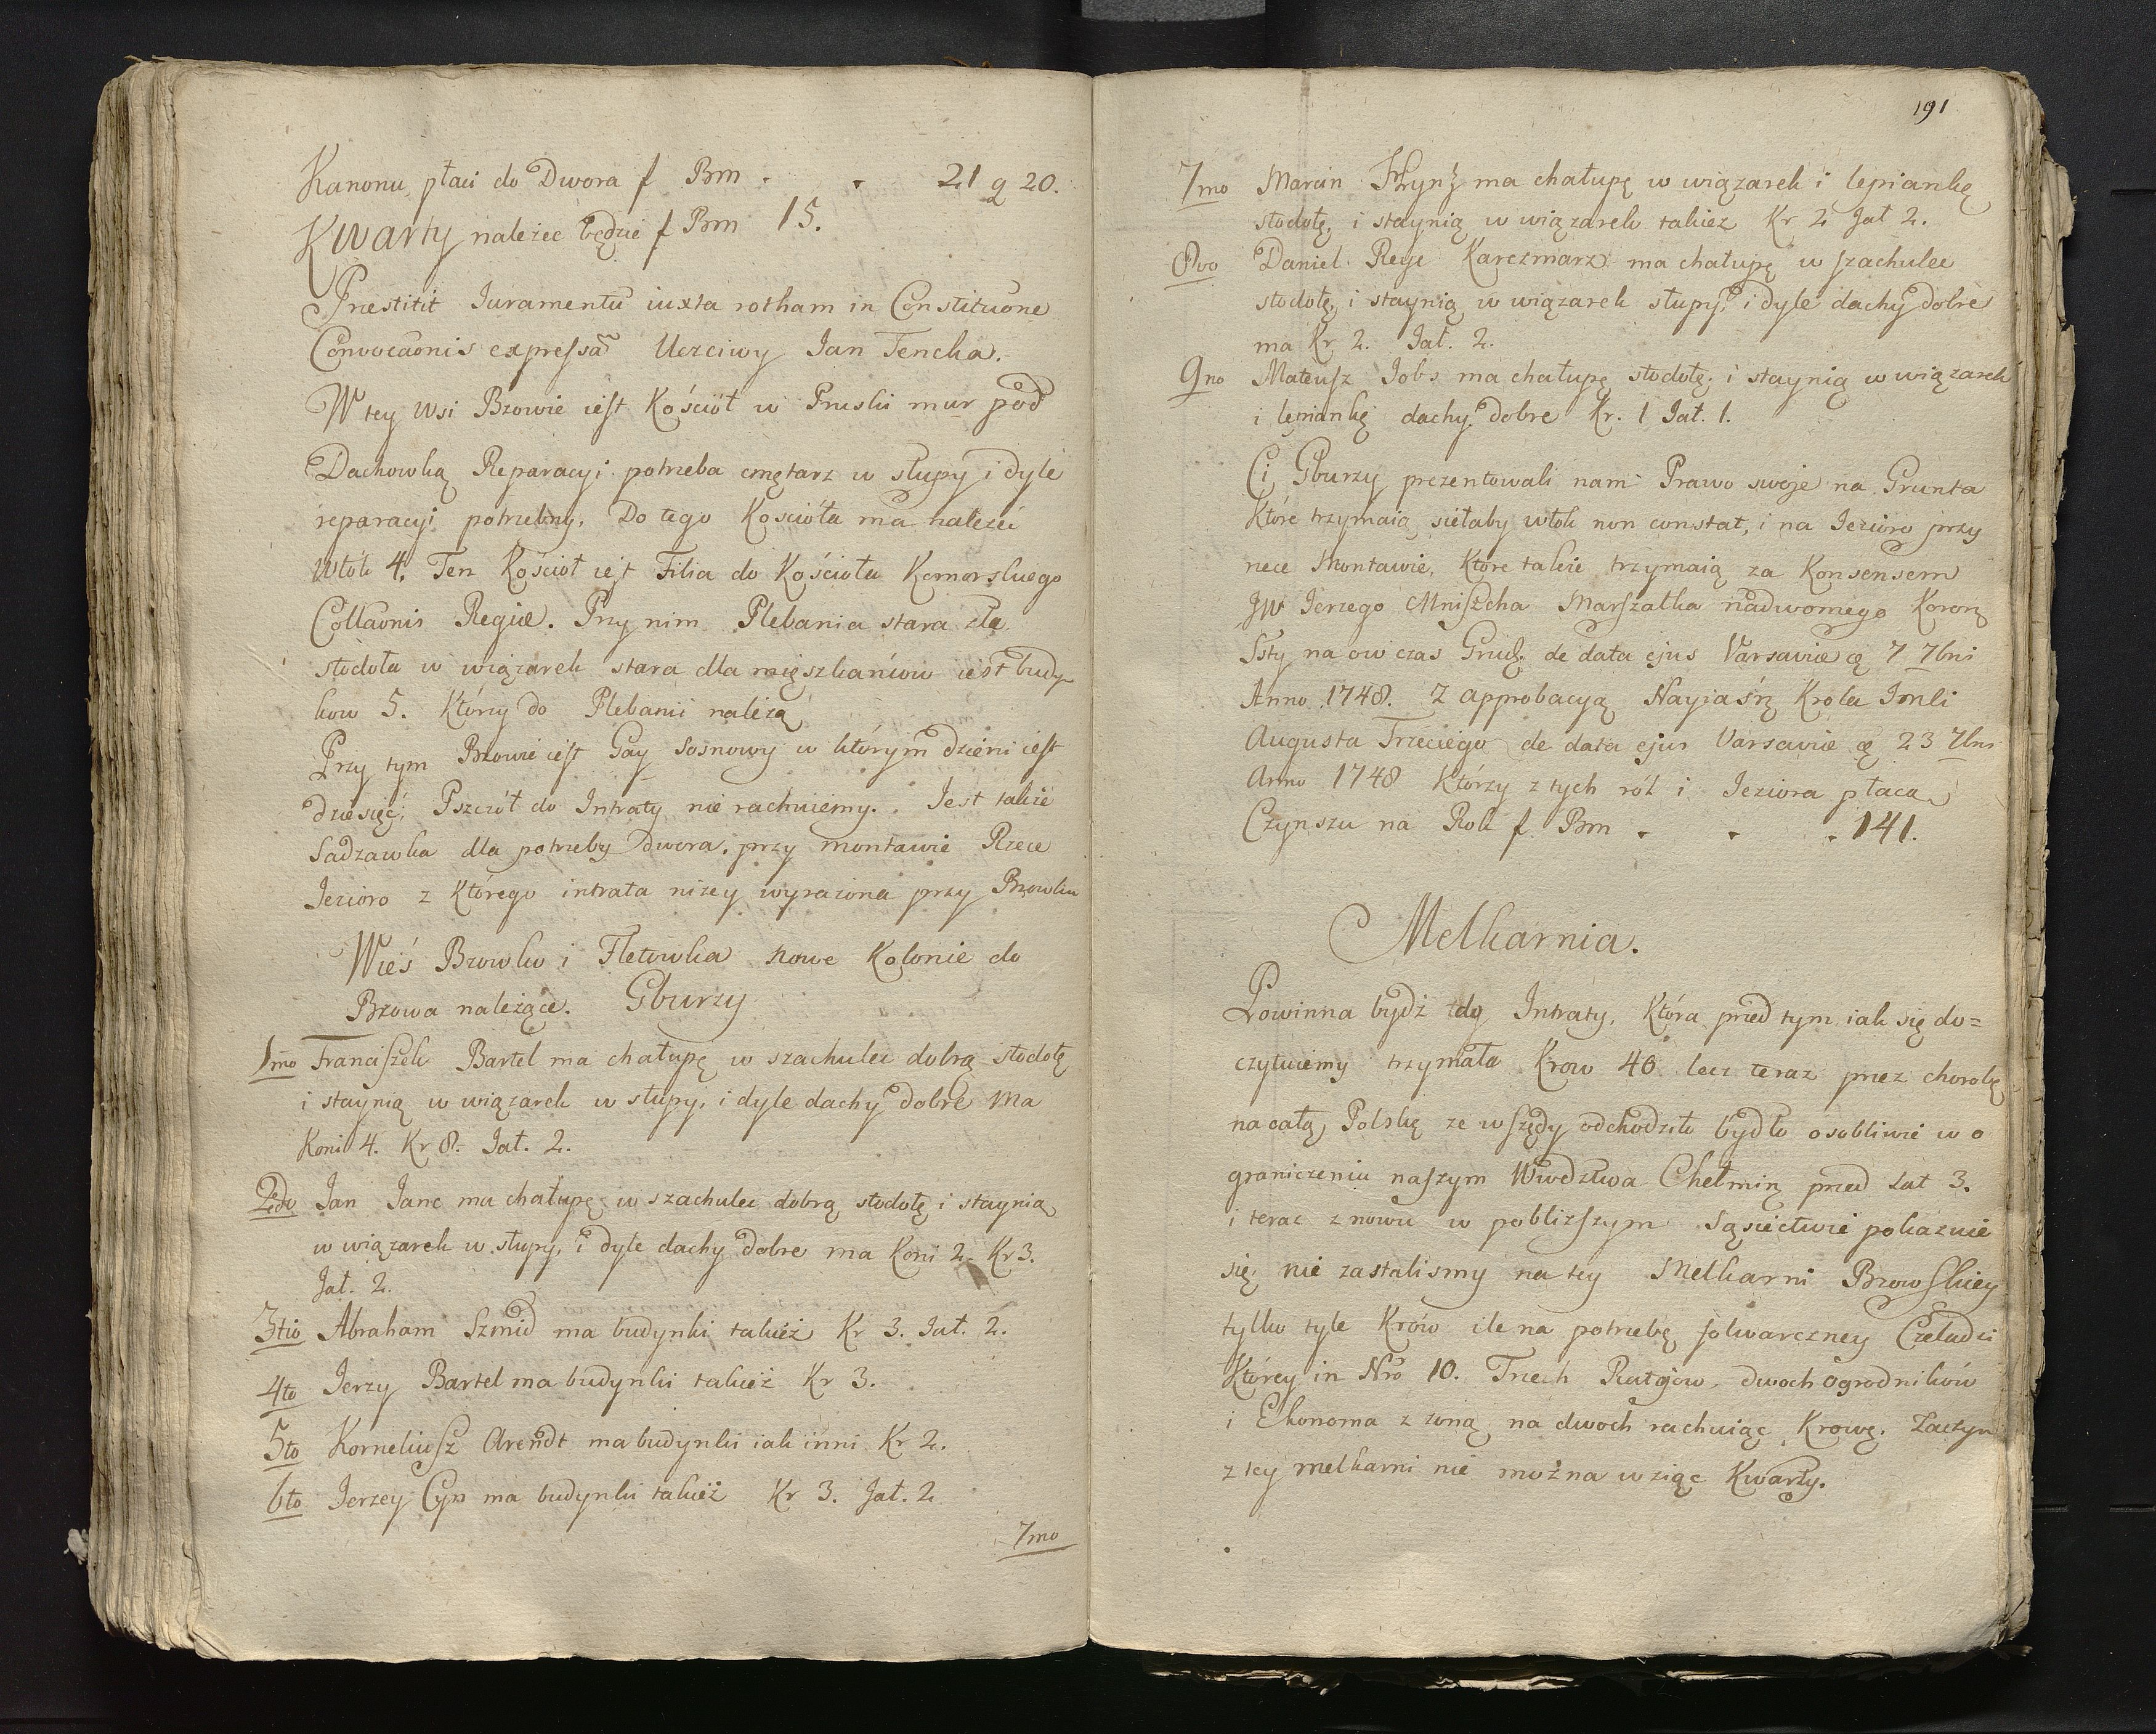 Kanonu płaci do Dwora f Prm . . 21 g 20.
Kwarty należec będzie f Prm 15.
Præstitit Juramentũ iuxta rotham in Constituõne
Convocaõnis expressã Uczciwy Jan Tencka.
W tey Wsi Bzowie iest Kościół w Pruski mur pod
Dachowką Reparacyi potrzeba cmętarz w słupy i dyle
reparacyi potrzebny. Do tego Kościoła ma należeć
Włók 4. Ten Kościoł iest Filia do Kościoła Komorskiego
Collaõnis Regiæ. Przy nim Plebania stara zła
stodoła w wiązarek stara dla mięszkańców iest budyn
kow 5. Którzy do Plebanii należą
Przy tym Bzowie iest Gay Sosnowy w którym dzieni iest
dziesięć, Pszczół do Intraty nie rachuiemy. Jest także
Sadzawka dla potrzeby dwora. przy montawie Rzece
Jezioro z Którego intrata niżey wyrażona przy Bzowku
Wieś Bzowko i Fletowka nowe Kolonie do
Bzowa należące. Gburzy
1mo Franciszek Bartel ma chałupę w szachulec dobrą stodołę
i staynią w wiązarek w słupy, i dyle dachy dobre Ma
Koni 4. Kr 8. Jał. 2.
2do Jan Janc ma chałupę w szachulec dobrą stodołę i staynią
w wiązarek w słupy, i dyle dachy dobre ma Koni 2. Kr 3.
Jał. 2.
3tio Abraham Szmid ma budynki takież Kr 3. Jał. 2.
4to Jerzy Bartel ma budynki takież Kr 3.
5to Korneliusz Arendt ma budynki iak inni Kr 2.
6to Jerzey Cyn ma budynki takież Kr 3. Jał. 2
7mo
191
7mo Marcin ma chałupę w wiązarek i lepiankę
stodołę, i staynią w wiązarek takież Kr 2 Jał 2.
8vo Daniel Reye Karczmarz ma chałupę w szachulec
stodołę, i staynią w wiązarek słupy, i dyle dachy dobre
ma Kr 2. Jał. 2.
9no Mateusz Jobs ma chałupę stodołę, i staynią w wiązarek
i lepiankę dachy dobre Kr. 1 Jał. 1.
Ci Gburzy prezentowali nam Prawo swoje na Grunta
Które trzymaią, wiełaby włók non constat, i na Jezioro przy
rzece Montawie, Które takie trzymaią za Konsensem
JW Jerzego Mniszcha Marszałka nadwornego Koroñ
Ssty na ow czas Grudz. de data ejus Varsaviæ 7 7bris
Anno 1748. Z approbacyą Nayiaśñ Krola Jmsći
Augusta Trzeciego de data ejus Varsaviæ 23 7bris
Anno 1748 Którzy z tych ról i Jeziora płacą
Czynszu na Rok f Prm . . . 141.
Melkarnia.
Powinna bydż do Intraty, Która przed tym iak się do=
czytuiemy trzymała Krow 40 lecz teraz przez chorobę
na całą Polskę ze wszędy odchodziło bydło osobliwie w o
graniczeniu naszym Wwodztwa Chełmiñ przed lat 3.
i teraz znowu w poblizszym sąsiectwie pokazuie
się, nie zastalismy na tey Melkarni Bzowskiey
tylko tyle Krów ile na potrzebę folwarczney Czeladzi
Którey in Nro 10. Trzech Ratajow, dwoch ogrodników
i Ekonoma z zoną na dwoch rachuiąc Krowę. Zaczym
z tey melkarni nie można wziąc Kwarty.